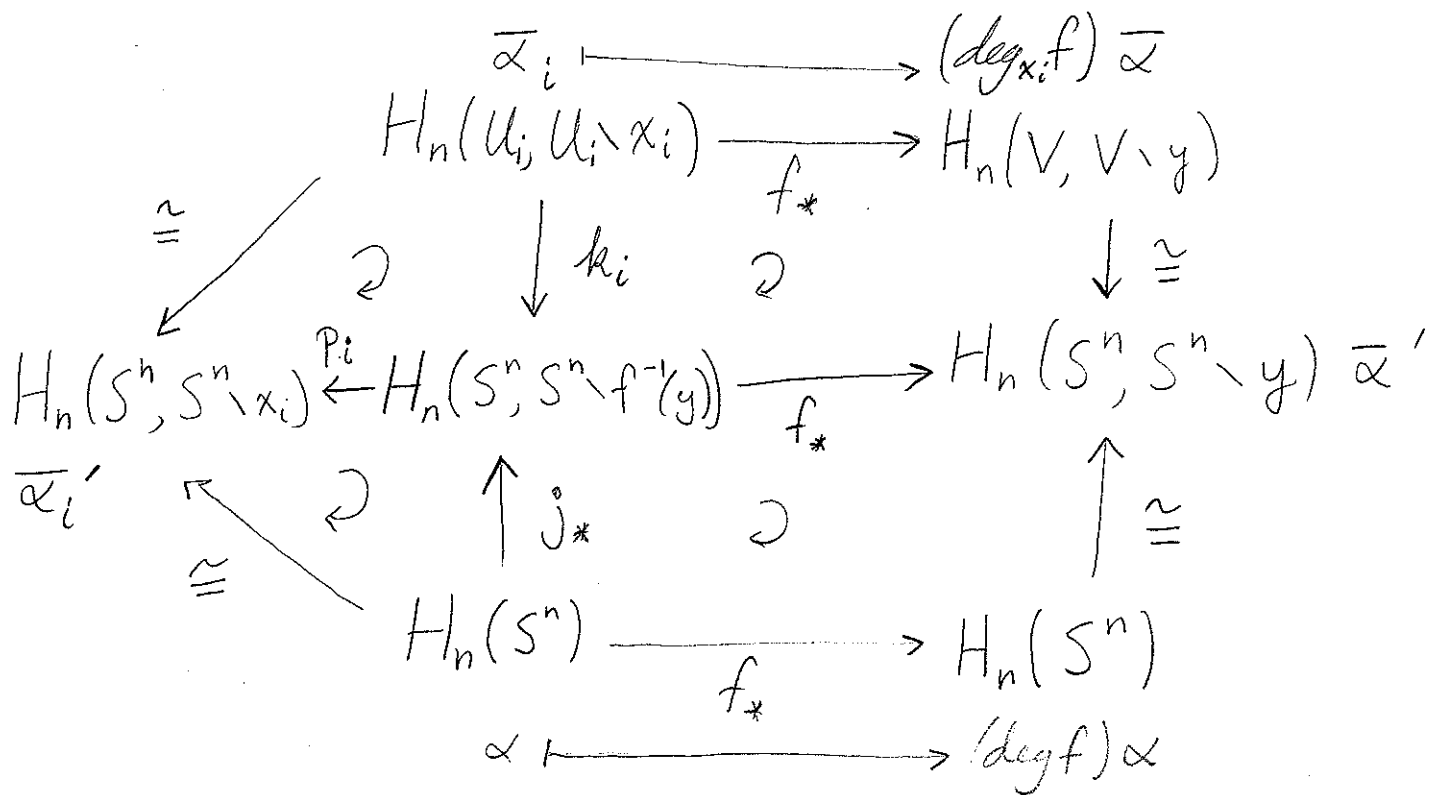 ᾱᵢ ⟼ (deg_{xᵢ} f) ᾱ
Hₙ(Uᵢ, Uᵢ∖xᵢ) → Hₙ(V, V∖y)
f_*
≅ kᵢ ≅
pᵢ
Hₙ(Sⁿ, Sⁿ∖xᵢ) ← Hₙ(Sⁿ, Sⁿ∖f⁻¹(y)) → Hₙ(Sⁿ, Sⁿ∖y) ᾱ′
f_*
ᾱᵢ′
≅ j_* ≅
Hₙ(Sⁿ) → Hₙ(Sⁿ)
f_*
α ⟼ (deg f) α